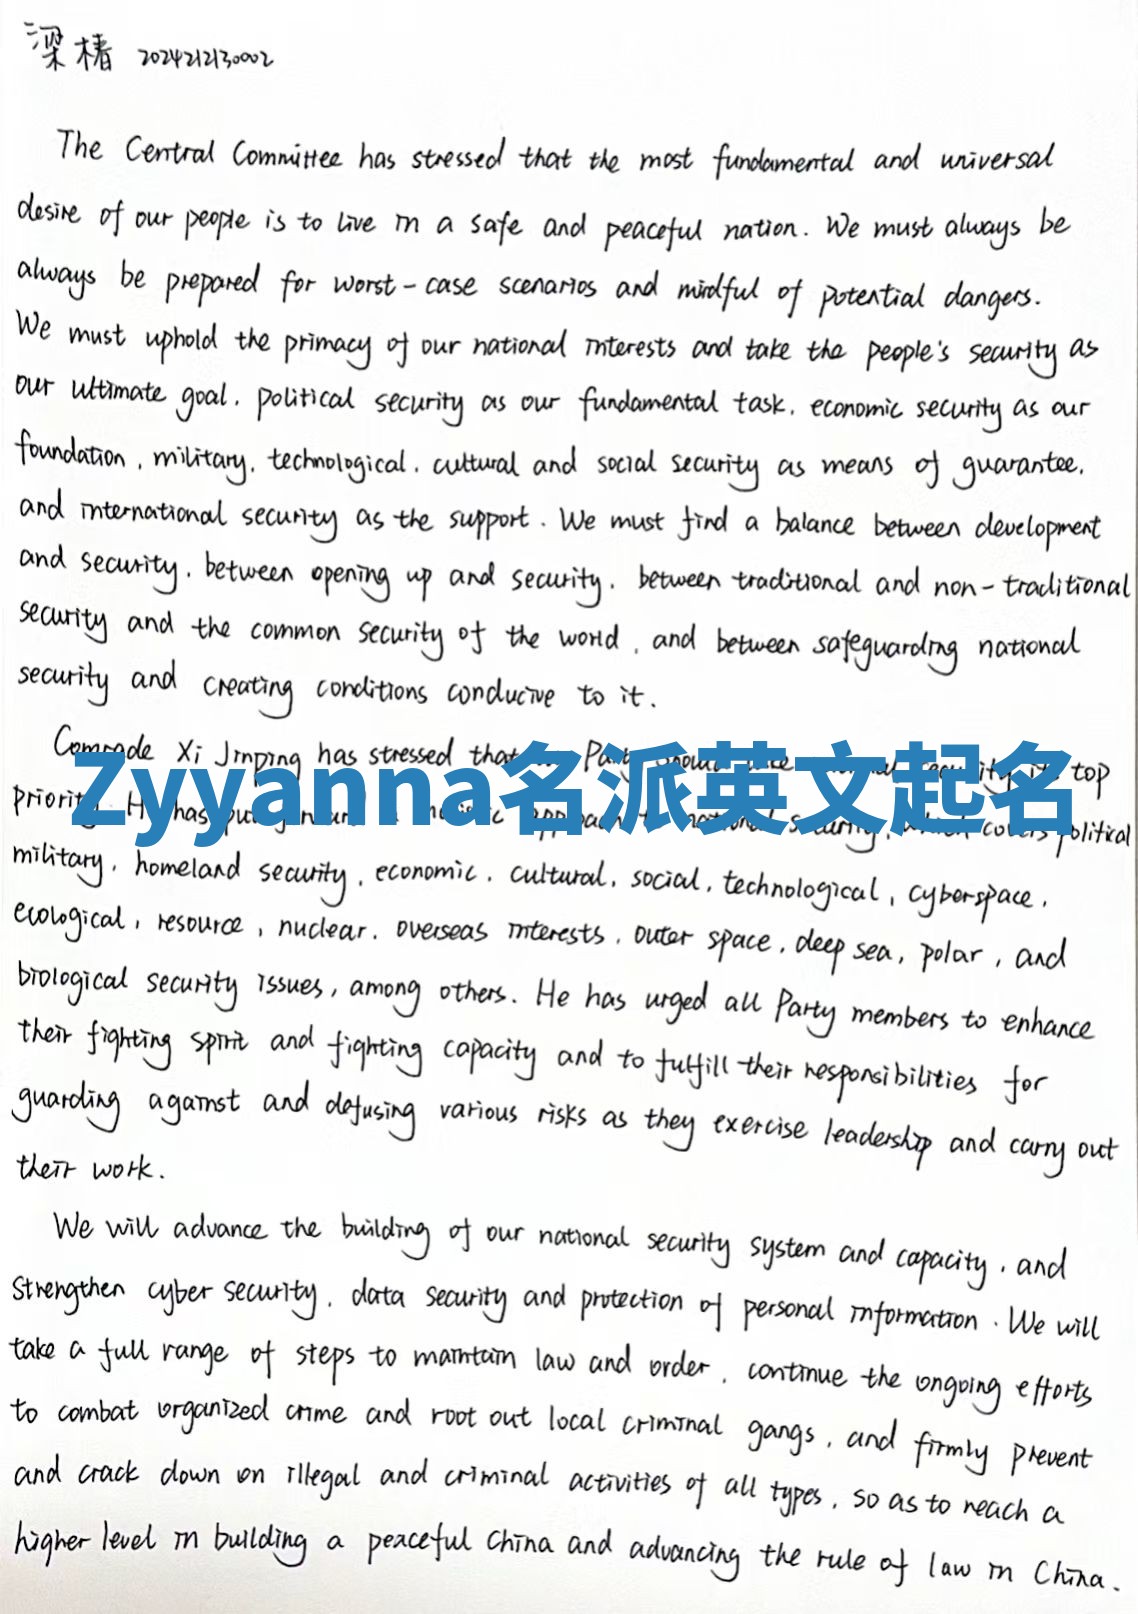 梁椿 2024212130002
The Central Committee has stressed that the most fundamental and universal
desire of our people is to live in a safe and peaceful nation. We must always be
always be prepared for worst-case scenarios and mindful of potential dangers.
We must uphold the primacy of our national interests and take the people's security as
our ultimate goal, political security as our fundamental task, economic security as our
foundation, military, technological, cultural and social security as means of guarantee,
and international security as the support. We must find a balance between development
and security, between opening up and security, between traditional and non-traditional
security and the common security of the world, and between safeguarding national
security and creating conditions conducive to it.
Comrade Xi Jinping has stressed that Party top
Zyyanna名派英文起名
priority. He has approach national security, which covers political
military, homeland security, economic, cultural, social, technological, cyberspace,
ecological, resource, nuclear, overseas interests, outer space, deep sea, polar, and
biological security issues, among others. He has urged all Party members to enhance
their fighting spirit and fighting capacity and to fulfill their responsibilities for
guarding against and defusing various risks as they exercise leadership and carry out
their work.
We will advance the building of our national security system and capacity, and
strengthen cyber security, data security and protection of personal information. We will
take a full range of steps to maintain law and order, continue the ongoing efforts
to combat organized crime and root out local criminal gangs, and firmly prevent
and crack down on illegal and criminal activities of all types, so as to reach a
higher level in building a peaceful China and advancing the rule of law in China.